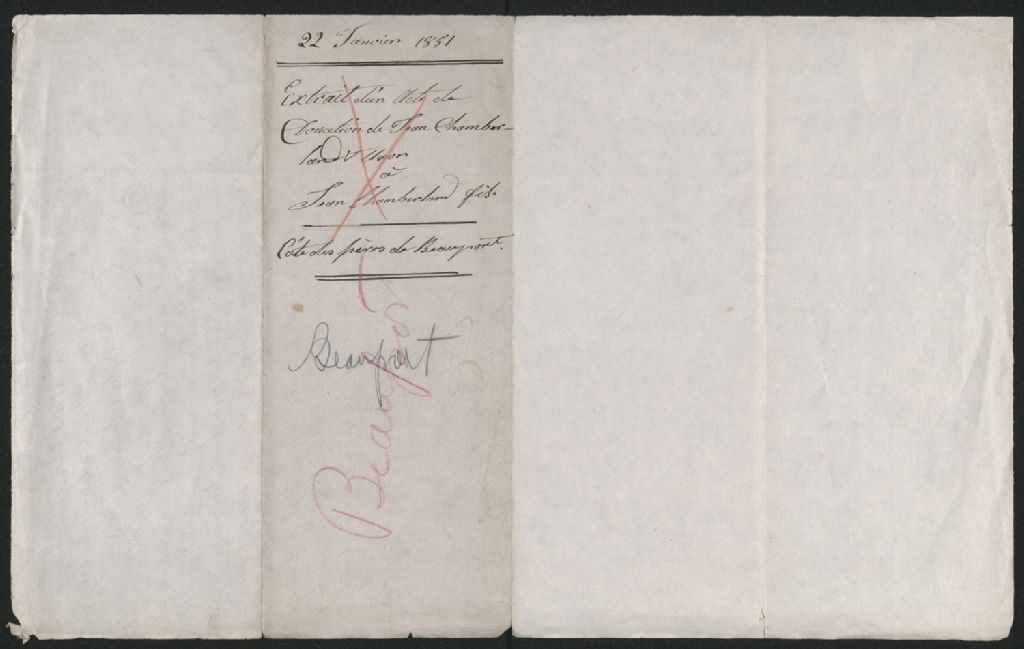 22 Janvier 1881
Extrait d'un Acte de
Donation de Jean Chamber-
land & Uxor
à
Jean Chamberland fils
Côte des pères de Beauport.
Beauport
Beauport